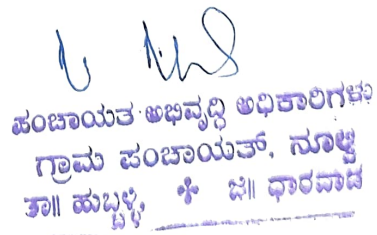 ಪಂಚಾಯತ ಅಭಿವೃದ್ಧಿ ಅಧಿಕಾರಿಗಳು
ಗ್ರಾಮ ಪಂಚಾಯತ್, ನೂಲ್ವಿ
ತಾ॥ ಹುಬ್ಬಳ್ಳಿ, ಜಿ॥ ಧಾರವಾಡ